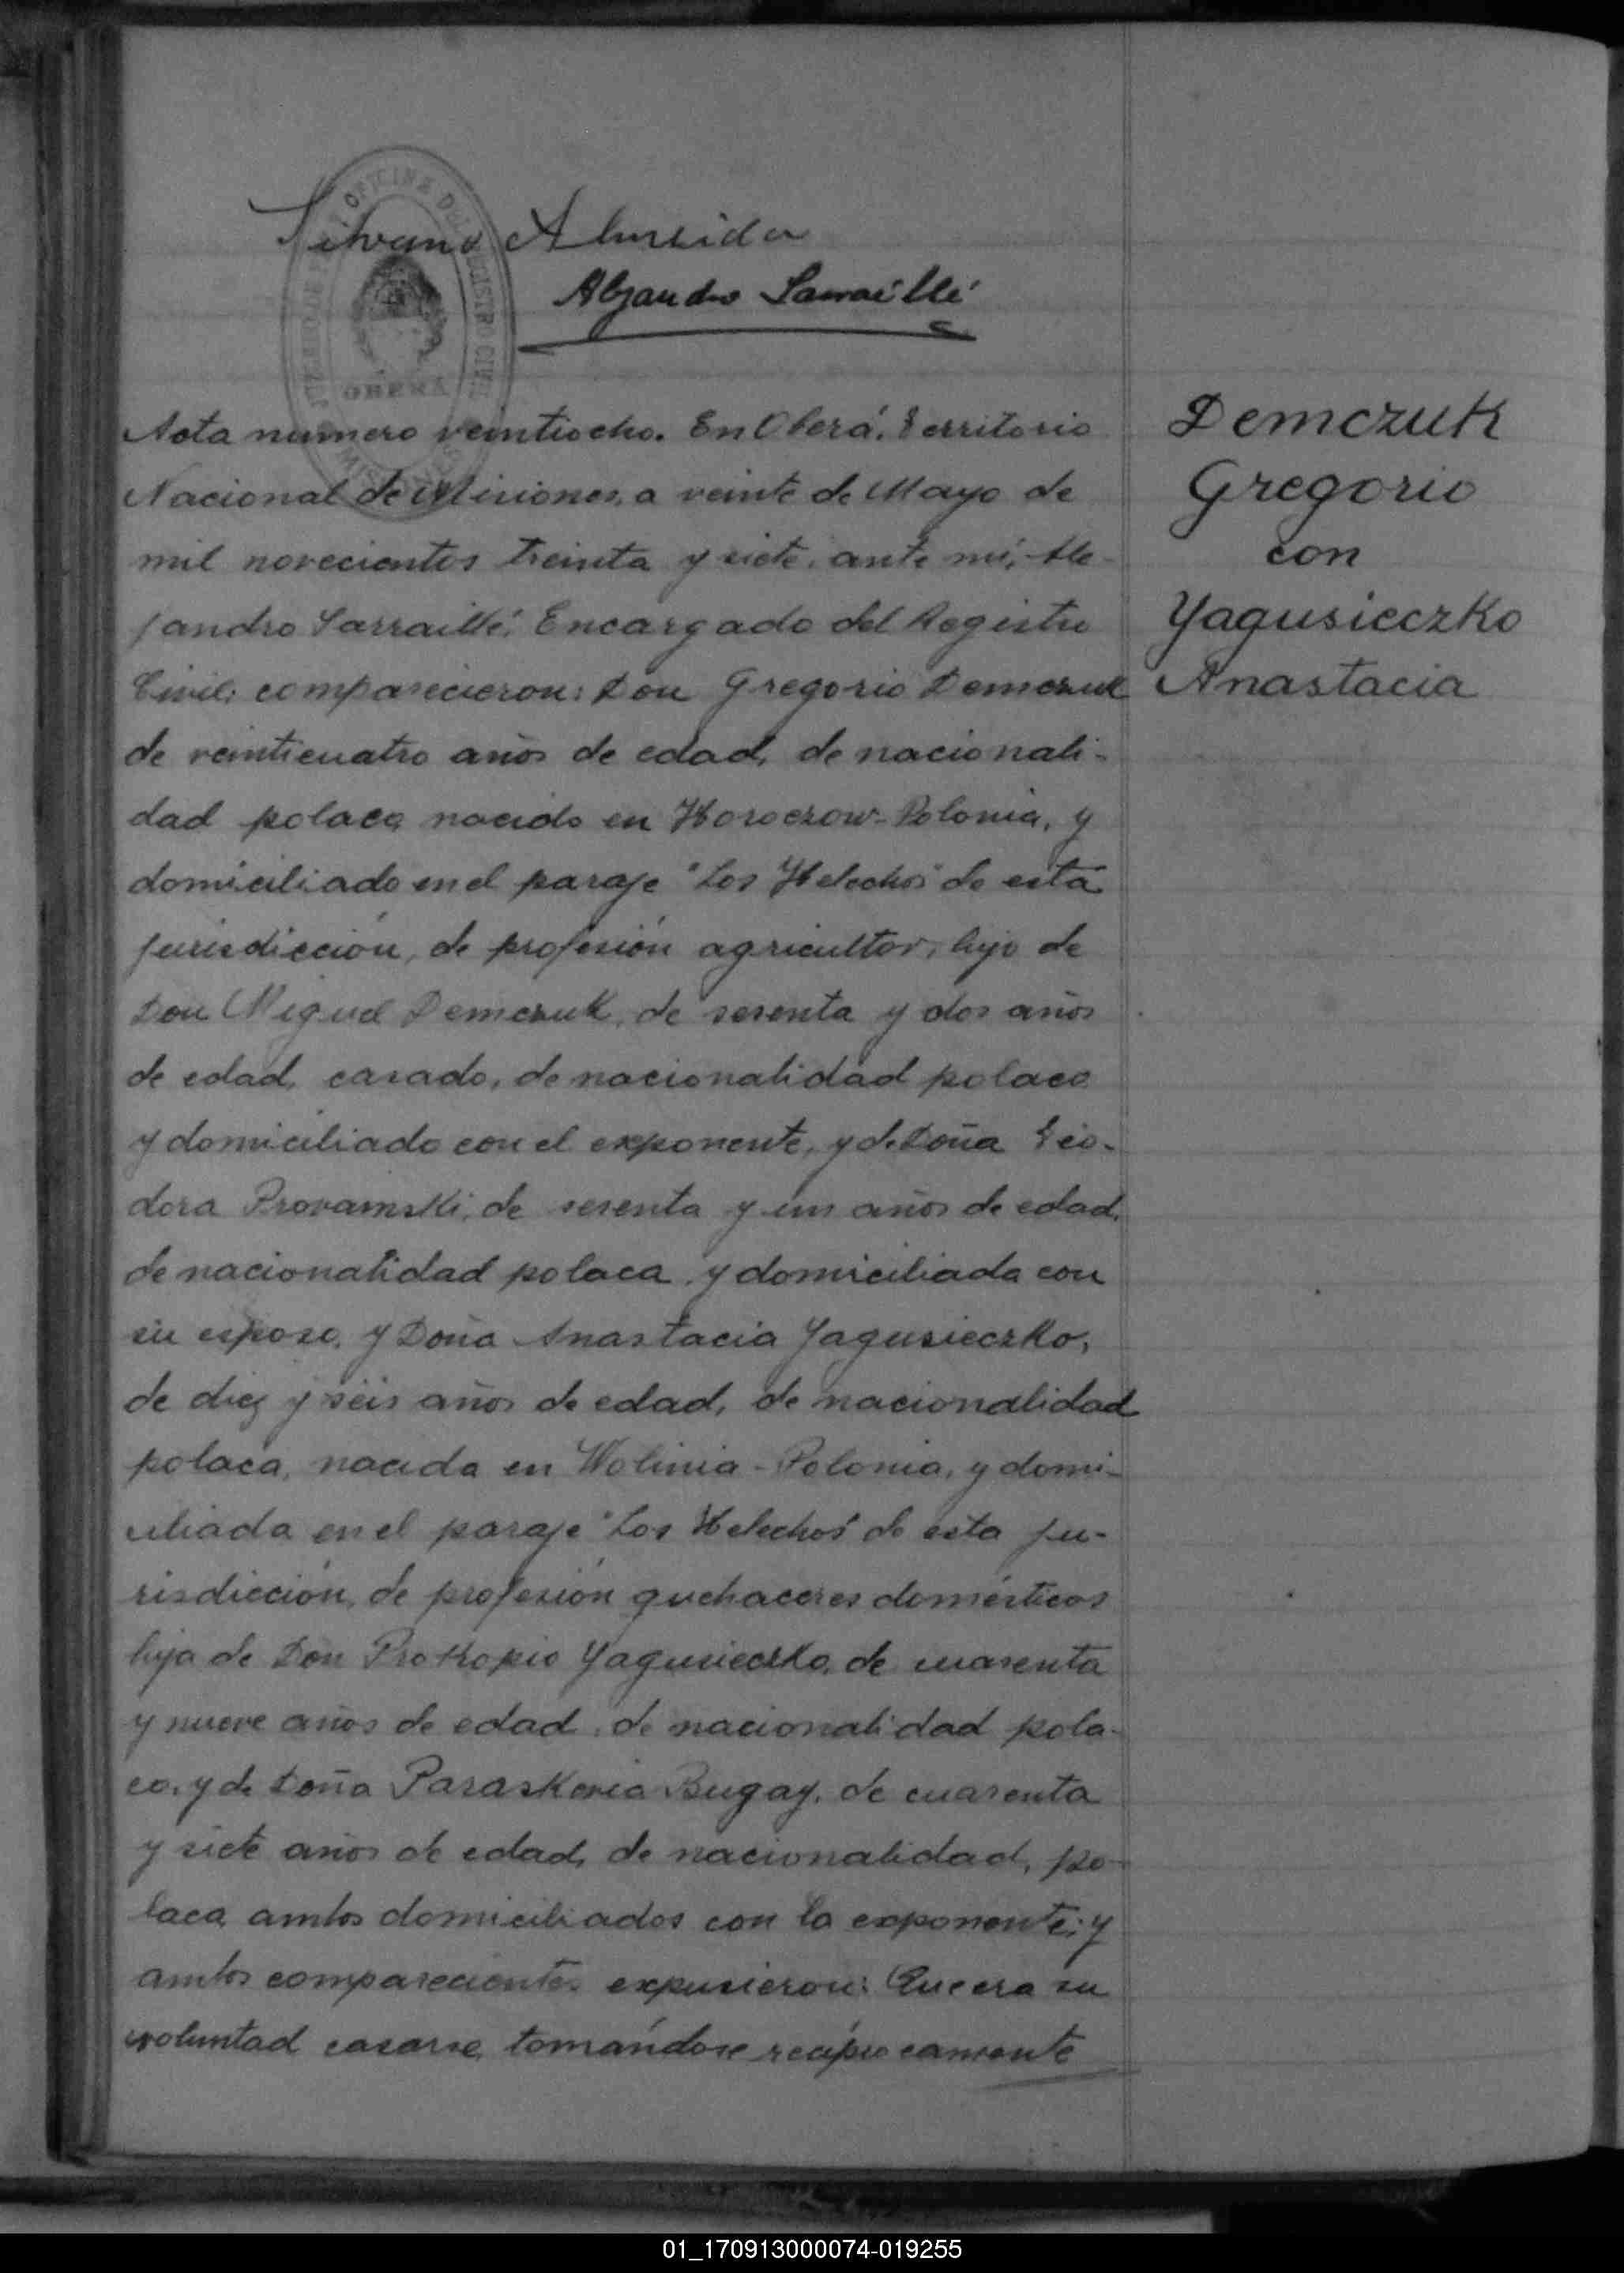 Silvano Almeida
Alejandro Sarraillé
OFICINA DEL REGISTRO CIVIL
OBERÁ
Acta numero veintiocho. En Oberá, Territorio
Nacional de Misiones, a veinte de Mayo de
mil novecientos treinta y siete, ante mí, Ale-
jandro Sarraillé, Encargado del Registro
Civil; comparecieron: Don Gregorio Demczuk
de veinticuatro años de edad, de nacionali-
dad polaca nacido en Horoczow-Polonia, y
domiciliado en el paraje "Los Helechos" de esta
jurisdicción, de profesión agricultor, hijo de
Don Miguel Demczuk, de sesenta y dos años
de edad, casado, de nacionalidad polaca
y domiciliado con el exponente, y de Doña Teo-
dora Provamski, de sesenta y un años de edad,
de nacionalidad polaca, y domiciliada con
su esposo, y Doña Anastacia Yagusieczko,
de diez y seis años de edad, de nacionalidad
polaca, nacida en Wolinia-Polonia, y domi-
ciliada en el paraje "Los Helechos" de esta ju-
risdicción, de profesión quehaceres domésticos
hija de Don Prokopio Yagusieczko, de cuarenta
y nueve años de edad, de nacionalidad pola-
co, y de Doña Paraskevia Bugay, de cuarenta
y siete años de edad, de nacionalidad, po-
laca, ambos domiciliados con la exponente; y
ambos comparecientes expusieron: Que era su
voluntad casarse, tomándose recíprocamente
Demczuk
Gregorio
con
Yagusieczko
Anastacia
01_170913000074-019255